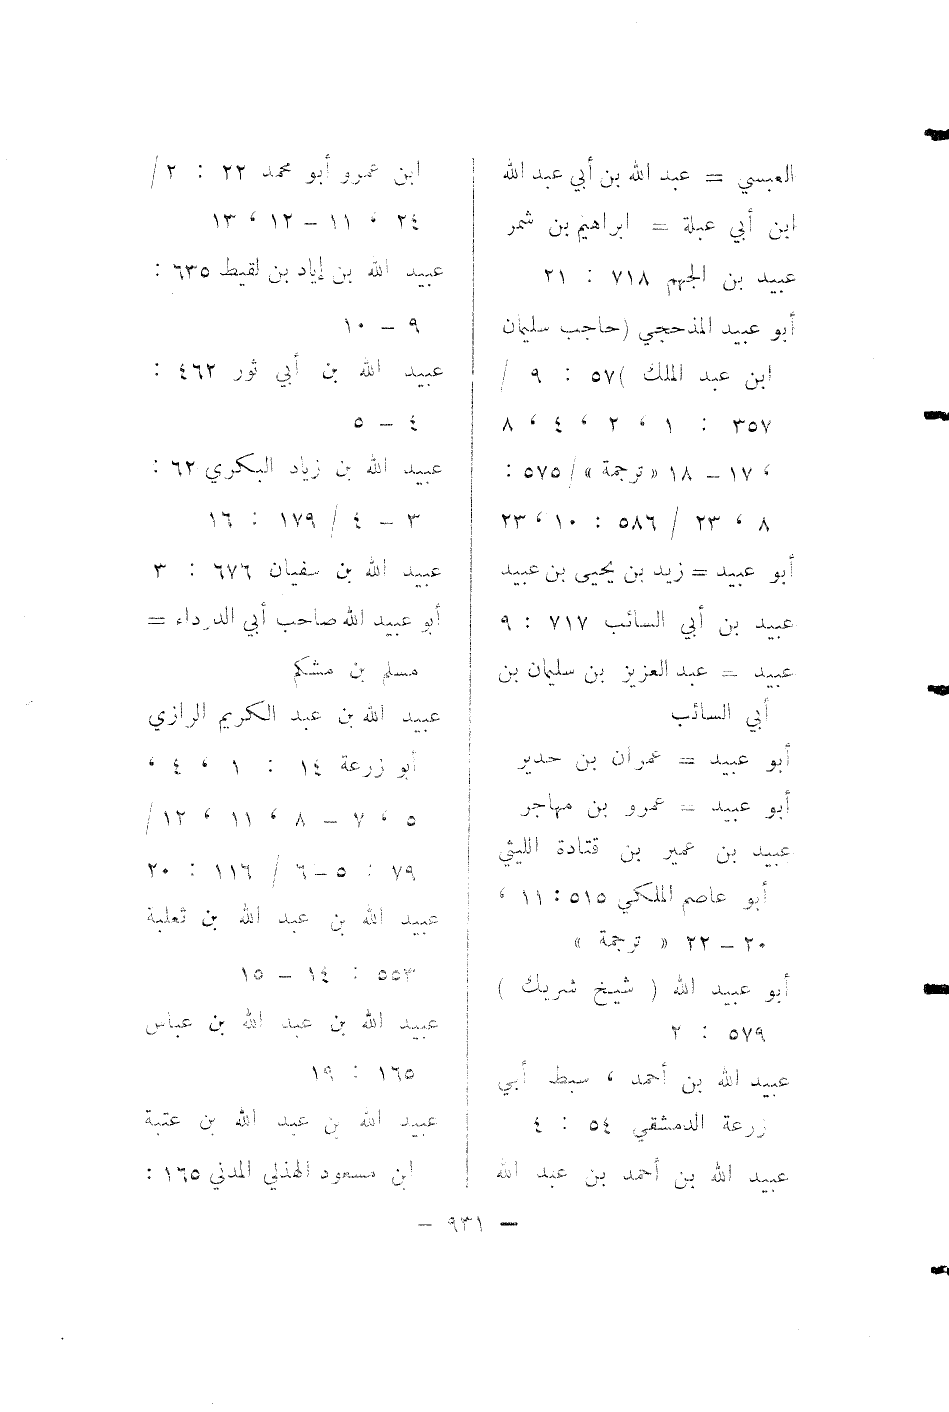 العبسي = عبد الله بن أبي عبد الله
ابن أبي عبلة = ابراهيم بن شمر
عبيد بن الجهم ٧١٨ : ٢١
أبو عبيد المذحجي (حاجب سليمان
ابن عبد الملك )٥٧ : ٩ /
٣٥٧ : ١ ، ٢ ، ٤ ، ٨
، ١٧ – ١٨ « ترجمة » / ٥٧٥ :
٨ ، ٢٣ / ٥٨٦ : ١٠ ، ٢٣
أبو عبيد = زيد بن يحيى بن عبيد
عبيد بن أبي السائب ٧١٧ : ٩
عبيد = عبد العزيز بن سليمان بن
أبي السائب
أبو عبيد = عمران بن حدير
أبو عبيد = عمرو بن مهاجر
عبيد بن عمير بن قتادة الليثي
أبو عاصم الملكي ٥١٥ : ١١ ،
٢٠ – ٢٢ « ترجمة »
أبو عبيد الله ( شيخ شريك )
٥٧٩ : ٢
عبيد الله بن أحمد ، سبط أبي
زرعة الدمشقي ٥٤ : ٤
عبيد الله بن أحمد بن عبد الله
ابن عمرو أبو محمد ٢٢ : ٢ /
٢٤ ، ١١ – ١٢ ، ١٣
عبيد الله بن إياد بن لقيط ٦٣٥ :
٩ – ١٠
عبيد الله بن أبي ثور ٤٦٢ :
٤ – ٥
عبيد الله بن زياد البكري ٦٢ :
٣ – ٤ / ١٧٩ : ١٦
عبيد الله بن سفيان ٦٧٦ : ٣
أبو عبيد الله صاحب أبي الدرداء =
مسلم بن مشكم
عبيد الله بن عبد الكريم الرازي
أبو زرعة ١٤ : ١ ، ٤ ،
٥ ، ٧ – ٨ ، ١١ ، ١٢ /
٧٩ : ٥ – ٦ / ١١٦ : ٢٠
عبيد الله بن عبد الله بن ثعلبة
٥٥٣ : ١٤ – ١٥
عبيد الله بن عبد الله بن عباس
١٦٥ : ١٩
عبيد الله بن عبد الله بن عتبة
ابن مسعود الهذلي المدني ١٦٥ :
– ٩٣١ –